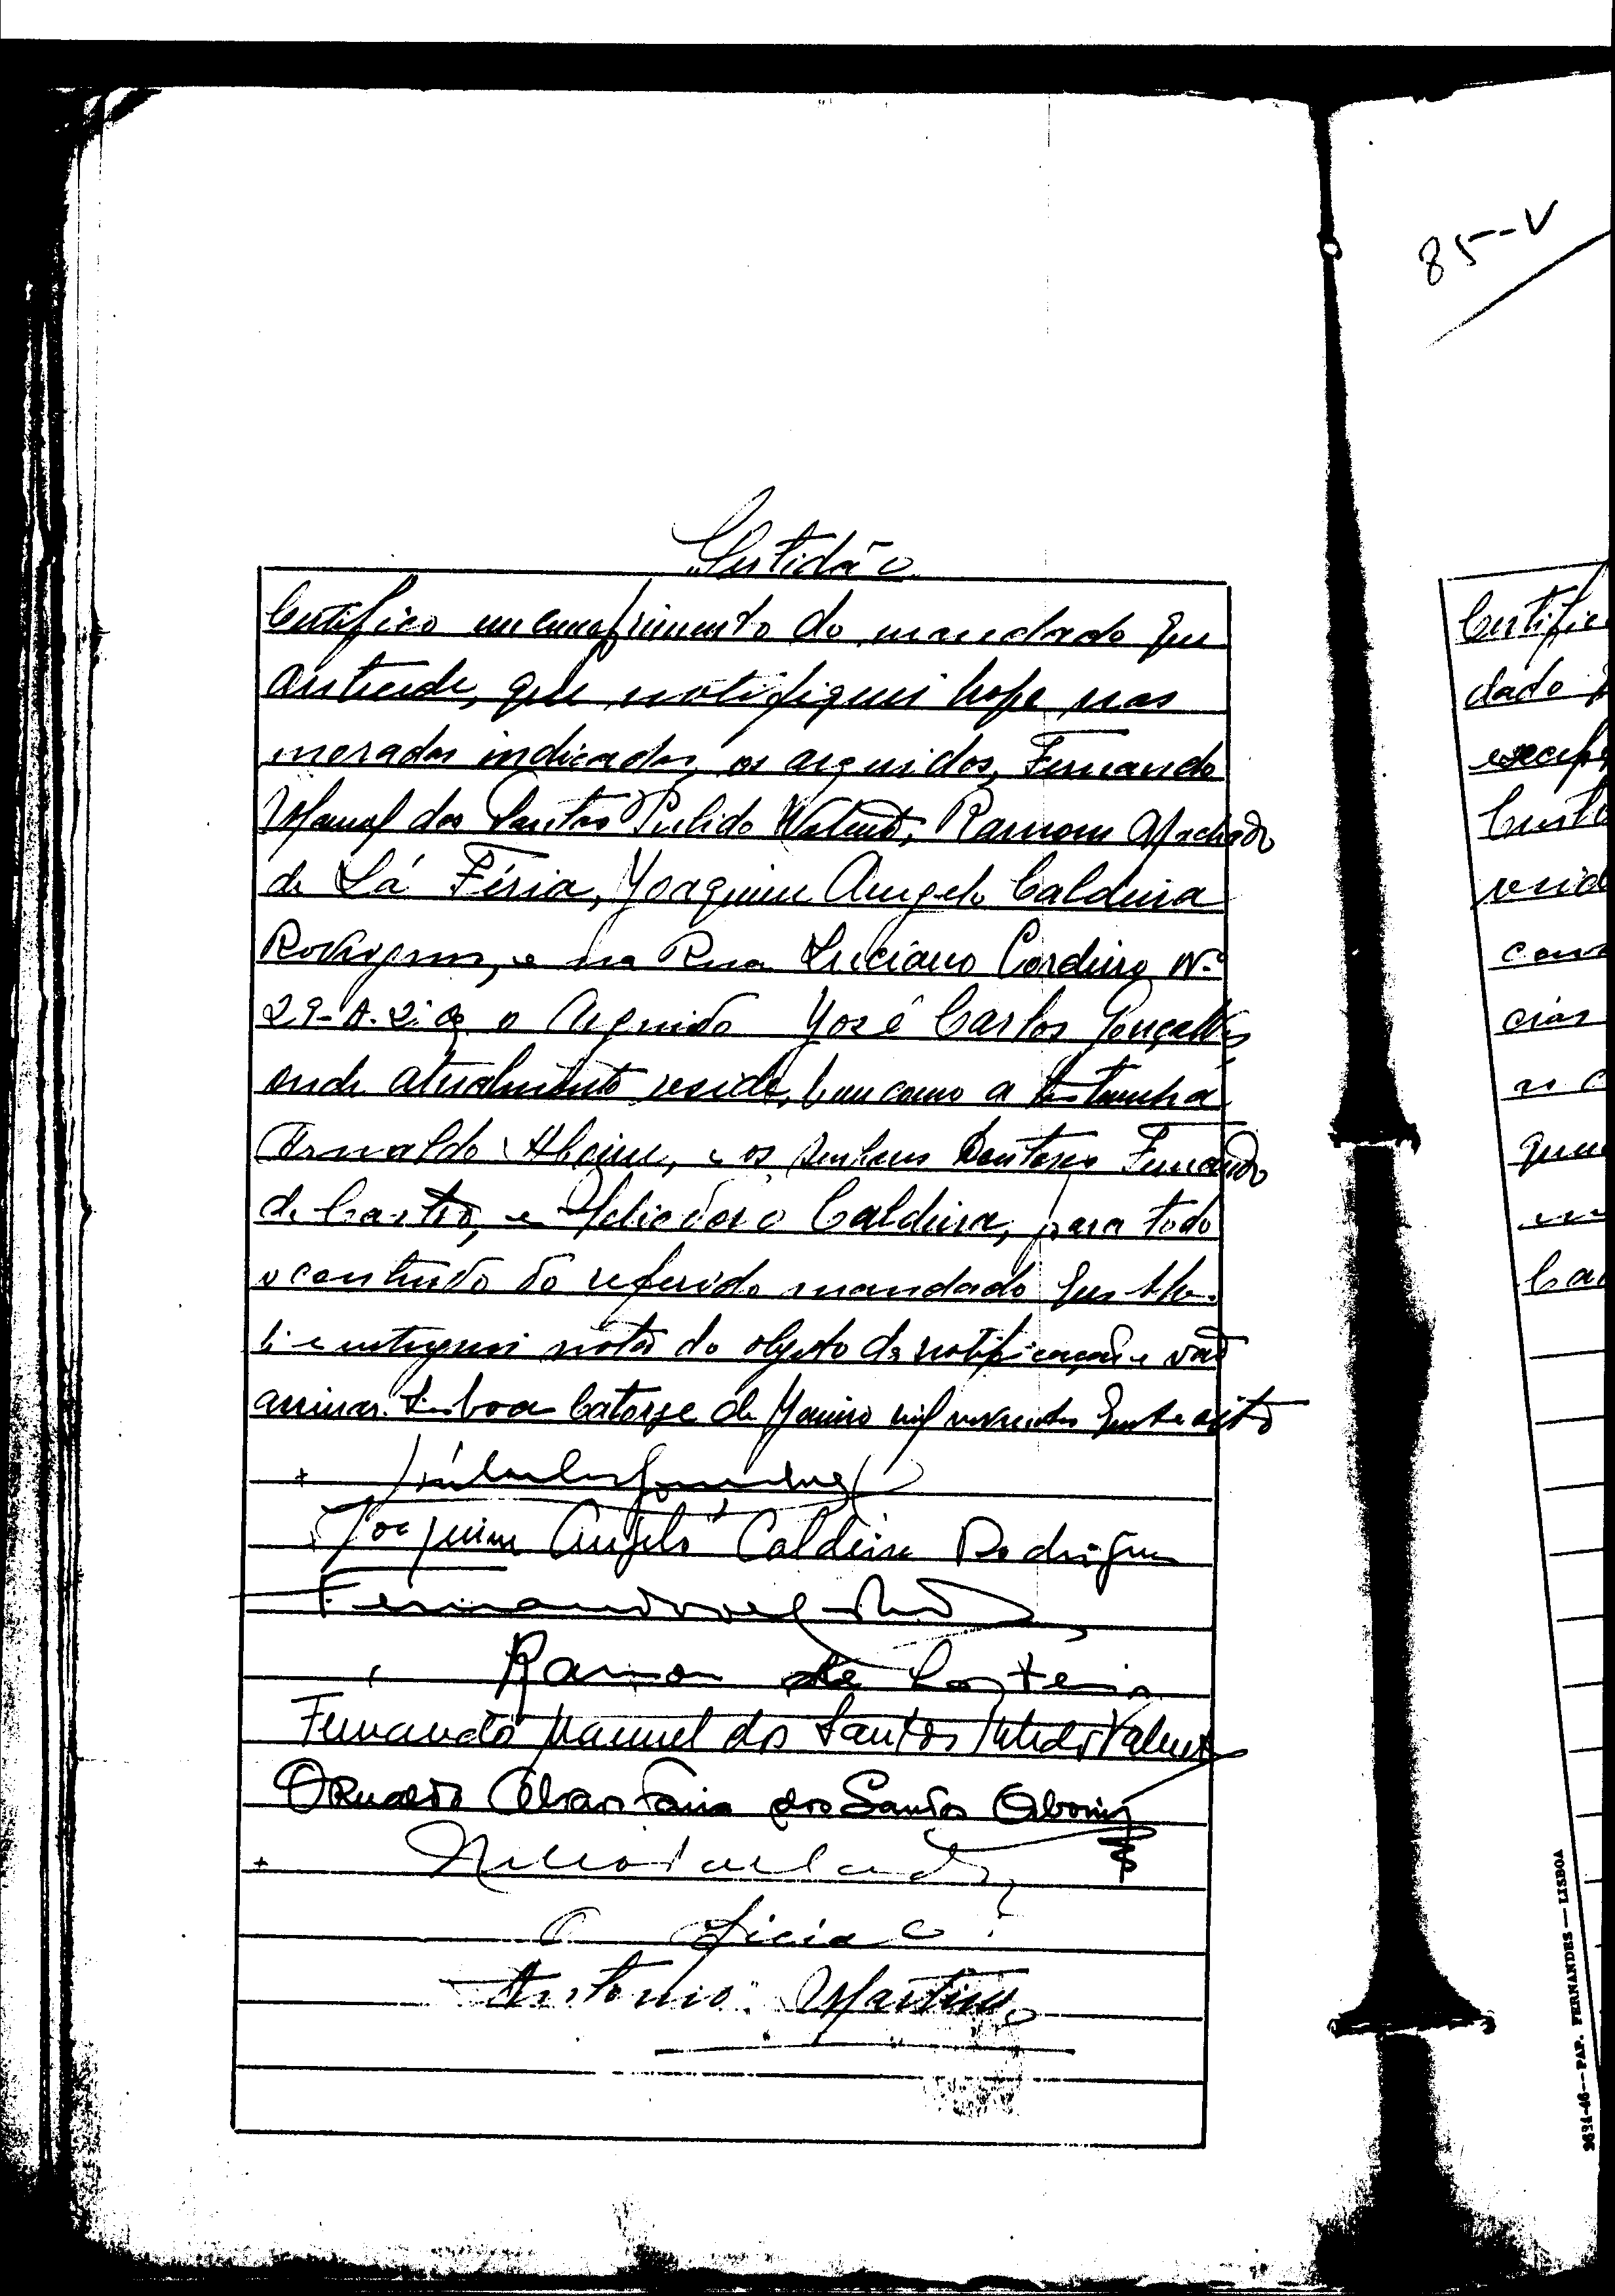 85-V
Certidão
Certifico em cumprimento do mandado que
antecede, que notifiquei hoje nas
moradas indicadas, os arguidos, Fernando
Manuel dos Santos Pulido Valente, Ramom Machado
de Lá Féria, Joaquim Angelo Caldeira
Rodrigues, e na Rua Luciano Cordeiro Nº
29-A-2º o Arguido José Carlos Gonçalves
onde atualmente reside, bem como a testemunha
Arnaldo Aboim, e os senhores Doutores Fernando
de Castro, e Heliodoro Caldeira, para todo
o conteudo do referido mandado que lhe
li e entreguei nota do objeto da notificação e vão
assinar. Lisboa Catorze de Janeiro mil novecentos e oito
Joaquim Angelo Caldeira Rodrigues
Fernando de Castro
Ramon de Lá Féria
Fernando Manuel dos Santos Pulido Valente
Arnaldo dos Santos Aboim
O Oficial
Antonio Martins
Certific
dado
ves
cias
9624-46 — PAP. FERNANDES — LISBOA